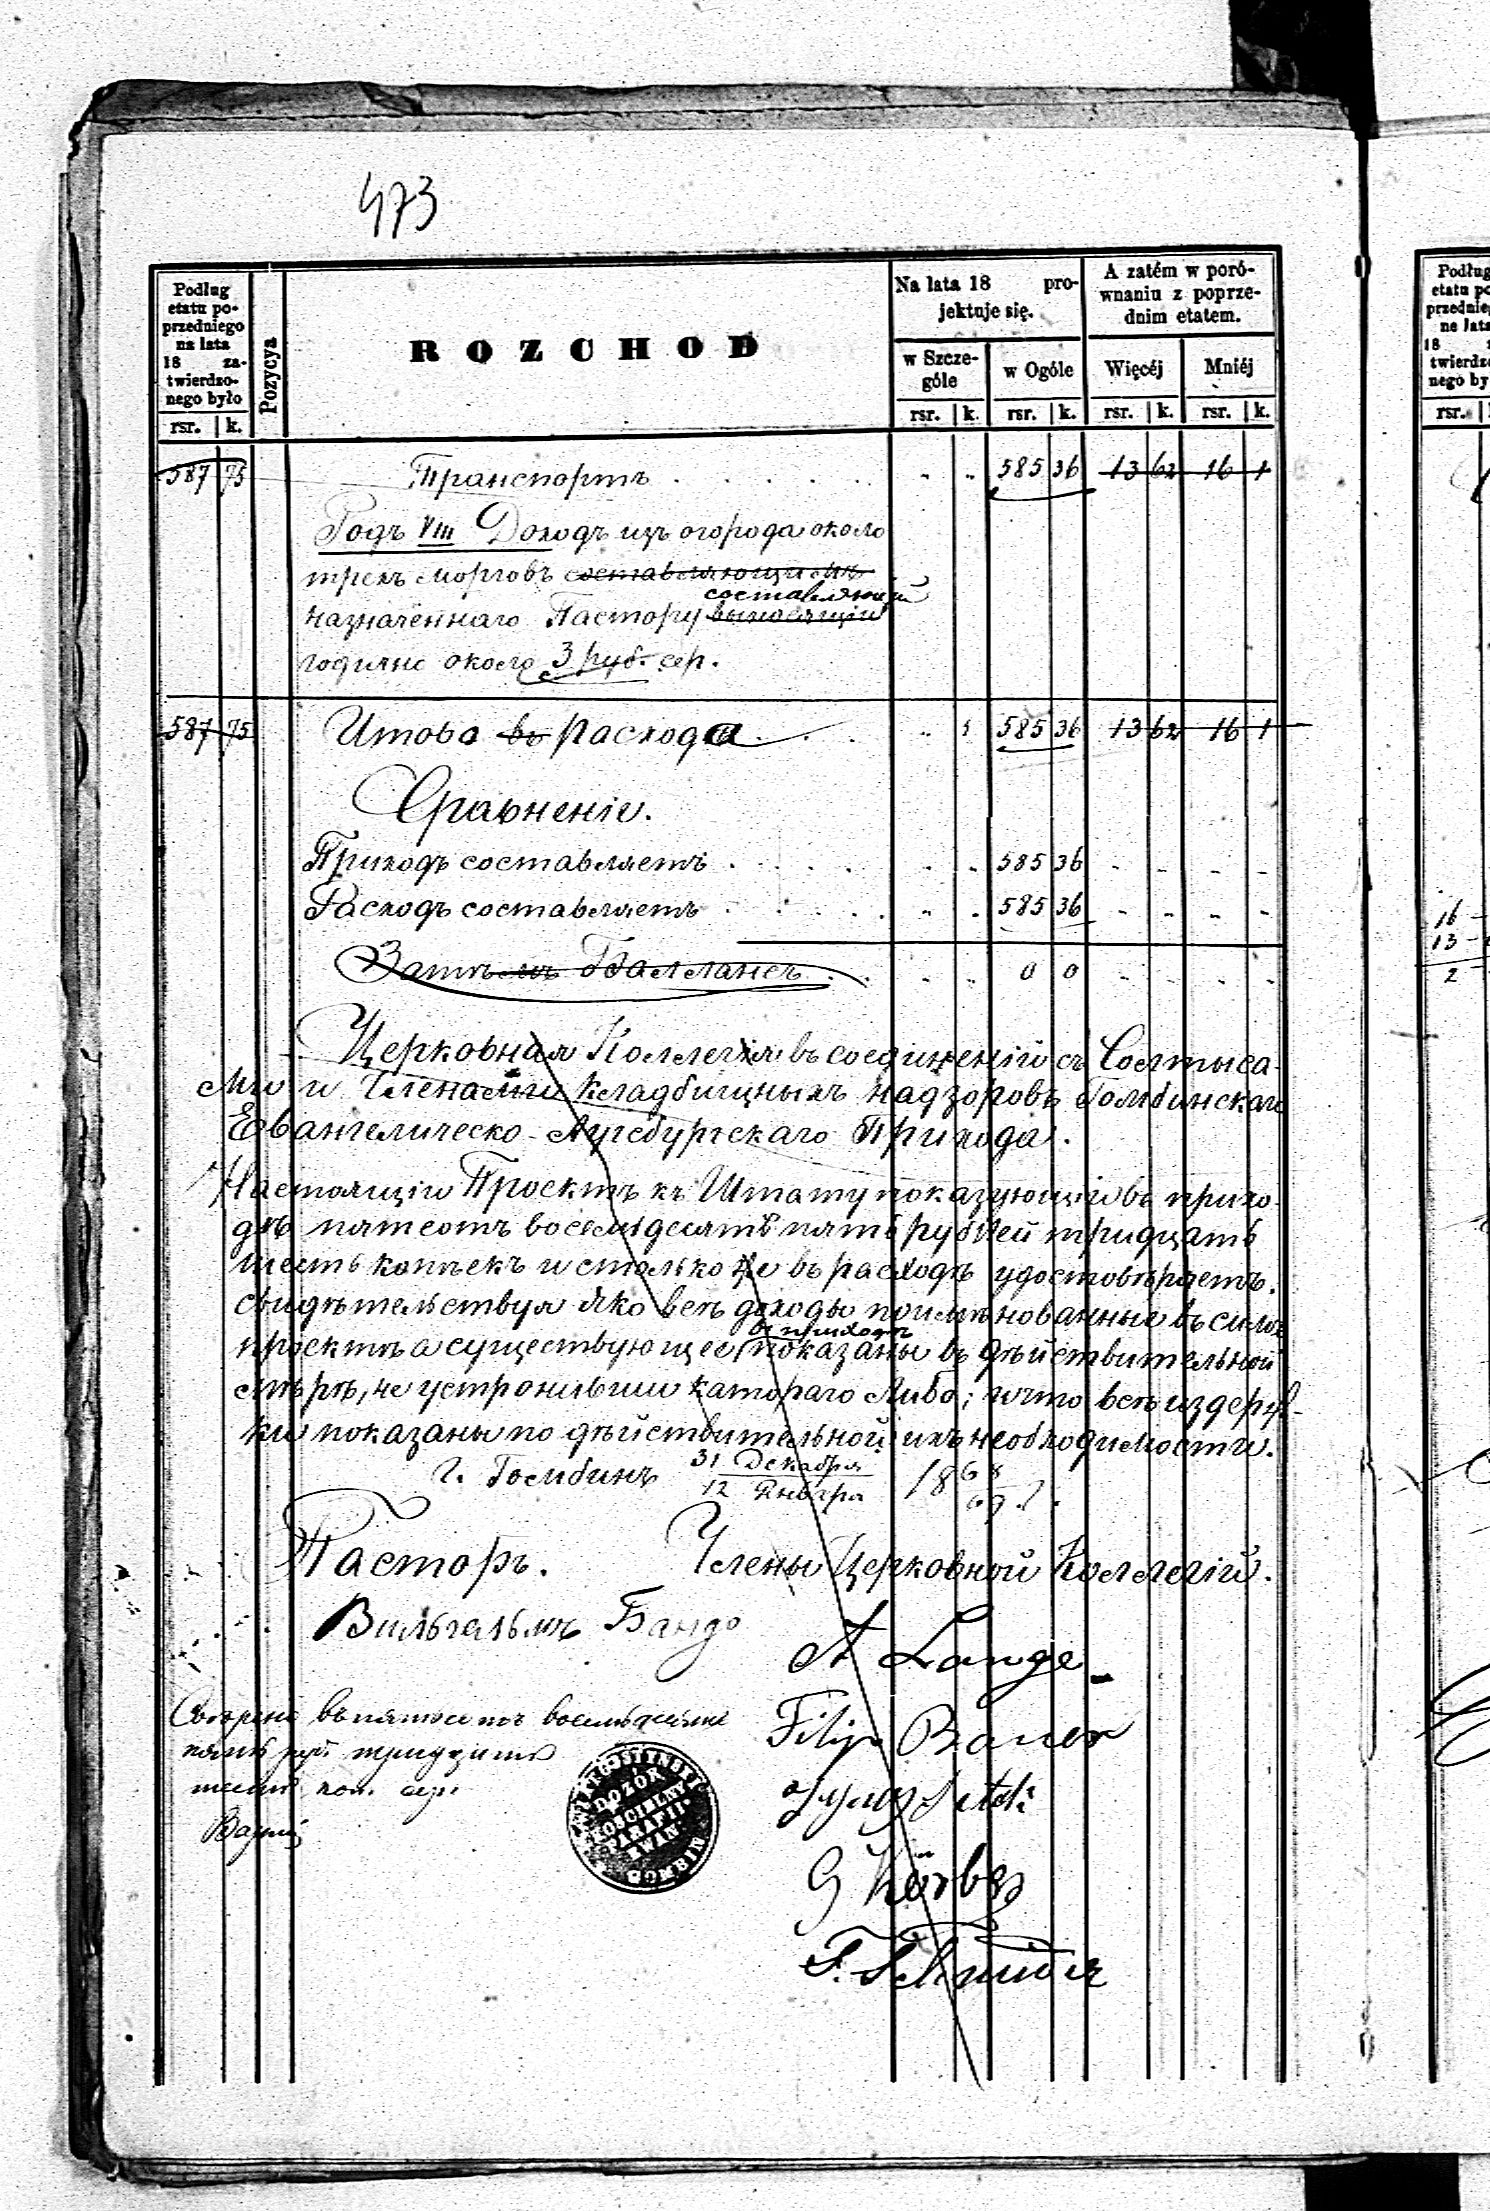 473
Podług etatu poprzedniego na lata 18 zatwierdzonego było
Pozycya
ROZCHOD
Na lata 18 projektuje się.
A zatém w porównaniu z poprzednim etatem.
w Szczególe
w Ogóle
Więcéj
Mniéj
rsr. k. rsr. k. rsr. k. rsr. k. rsr. k.
587 75 Транспортъ . . . . . 585 36 13 62 16 1
Родъ VIII Доходъ изъ огорода около
трехъ морговъ составляющимъ
составляющій
назначеннаго Пастору
годично около 3 руб. сер.
587 75 Итого въ расхода . . . 585 36 13 62 16 1
Сравненіе.
Приходъ составляетъ . . . . 585 36
Расходъ составляетъ . . . . 585 36
Затѣмъ Баллансъ . . 0 0
Церковная Коллегія въ соединеній съ Солтыса-
ми и Членами кладбищныхъ надзоровъ Гомбинскаго
Евангелическо-Аугсбургскаго Прихода.
Настоящій Проектъ къ Штату показующій въ прихо-
дѣ пятсотъ восемдесятъ пять рублей тридцать
шесть копѣекъ и столько же въ расходѣ удостовѣряетъ.
свидѣтельствуя яко всѣ доходы поимѣнованные въ симъ
въ приходѣ
проектѣ а существующее показаны въ дѣйствительной
мѣрѣ, не устронивши котораго либо; и что всѣ издерж-
ки показаны по дѣйствительной ихъ необходимости.
г. Гомбинъ 31 Декабря / 12 Января 1868/69 г.
Пасторъ. Члены Церковной Коллегій.
Вильгельмъ Бандо
A Lange
въ пятьсотъ восемьдесятъ
Filip Bauer
пять руб. тридцать
шесть коп. сер.
DOZÓR
KOŚCIELNY
PARAFII
EWAN
G Körber
F. Schmidt
Podług etatu poprzedniego na lata 18
rsr.
16
13
2